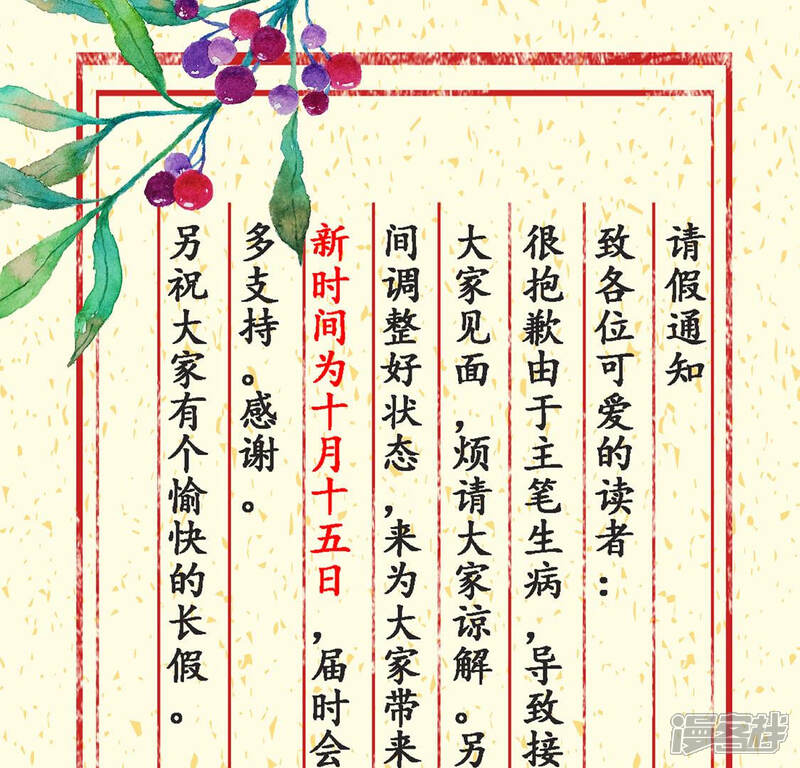 请假通知
致各位可爱的读者：
很抱歉由于主笔生病，导致接
大家见面，烦请大家谅解。另
间调整好状态，来为大家带来
新时间为十月十五日，届时会
多支持。感谢。
另祝大家有个愉快的长假。
漫客栈